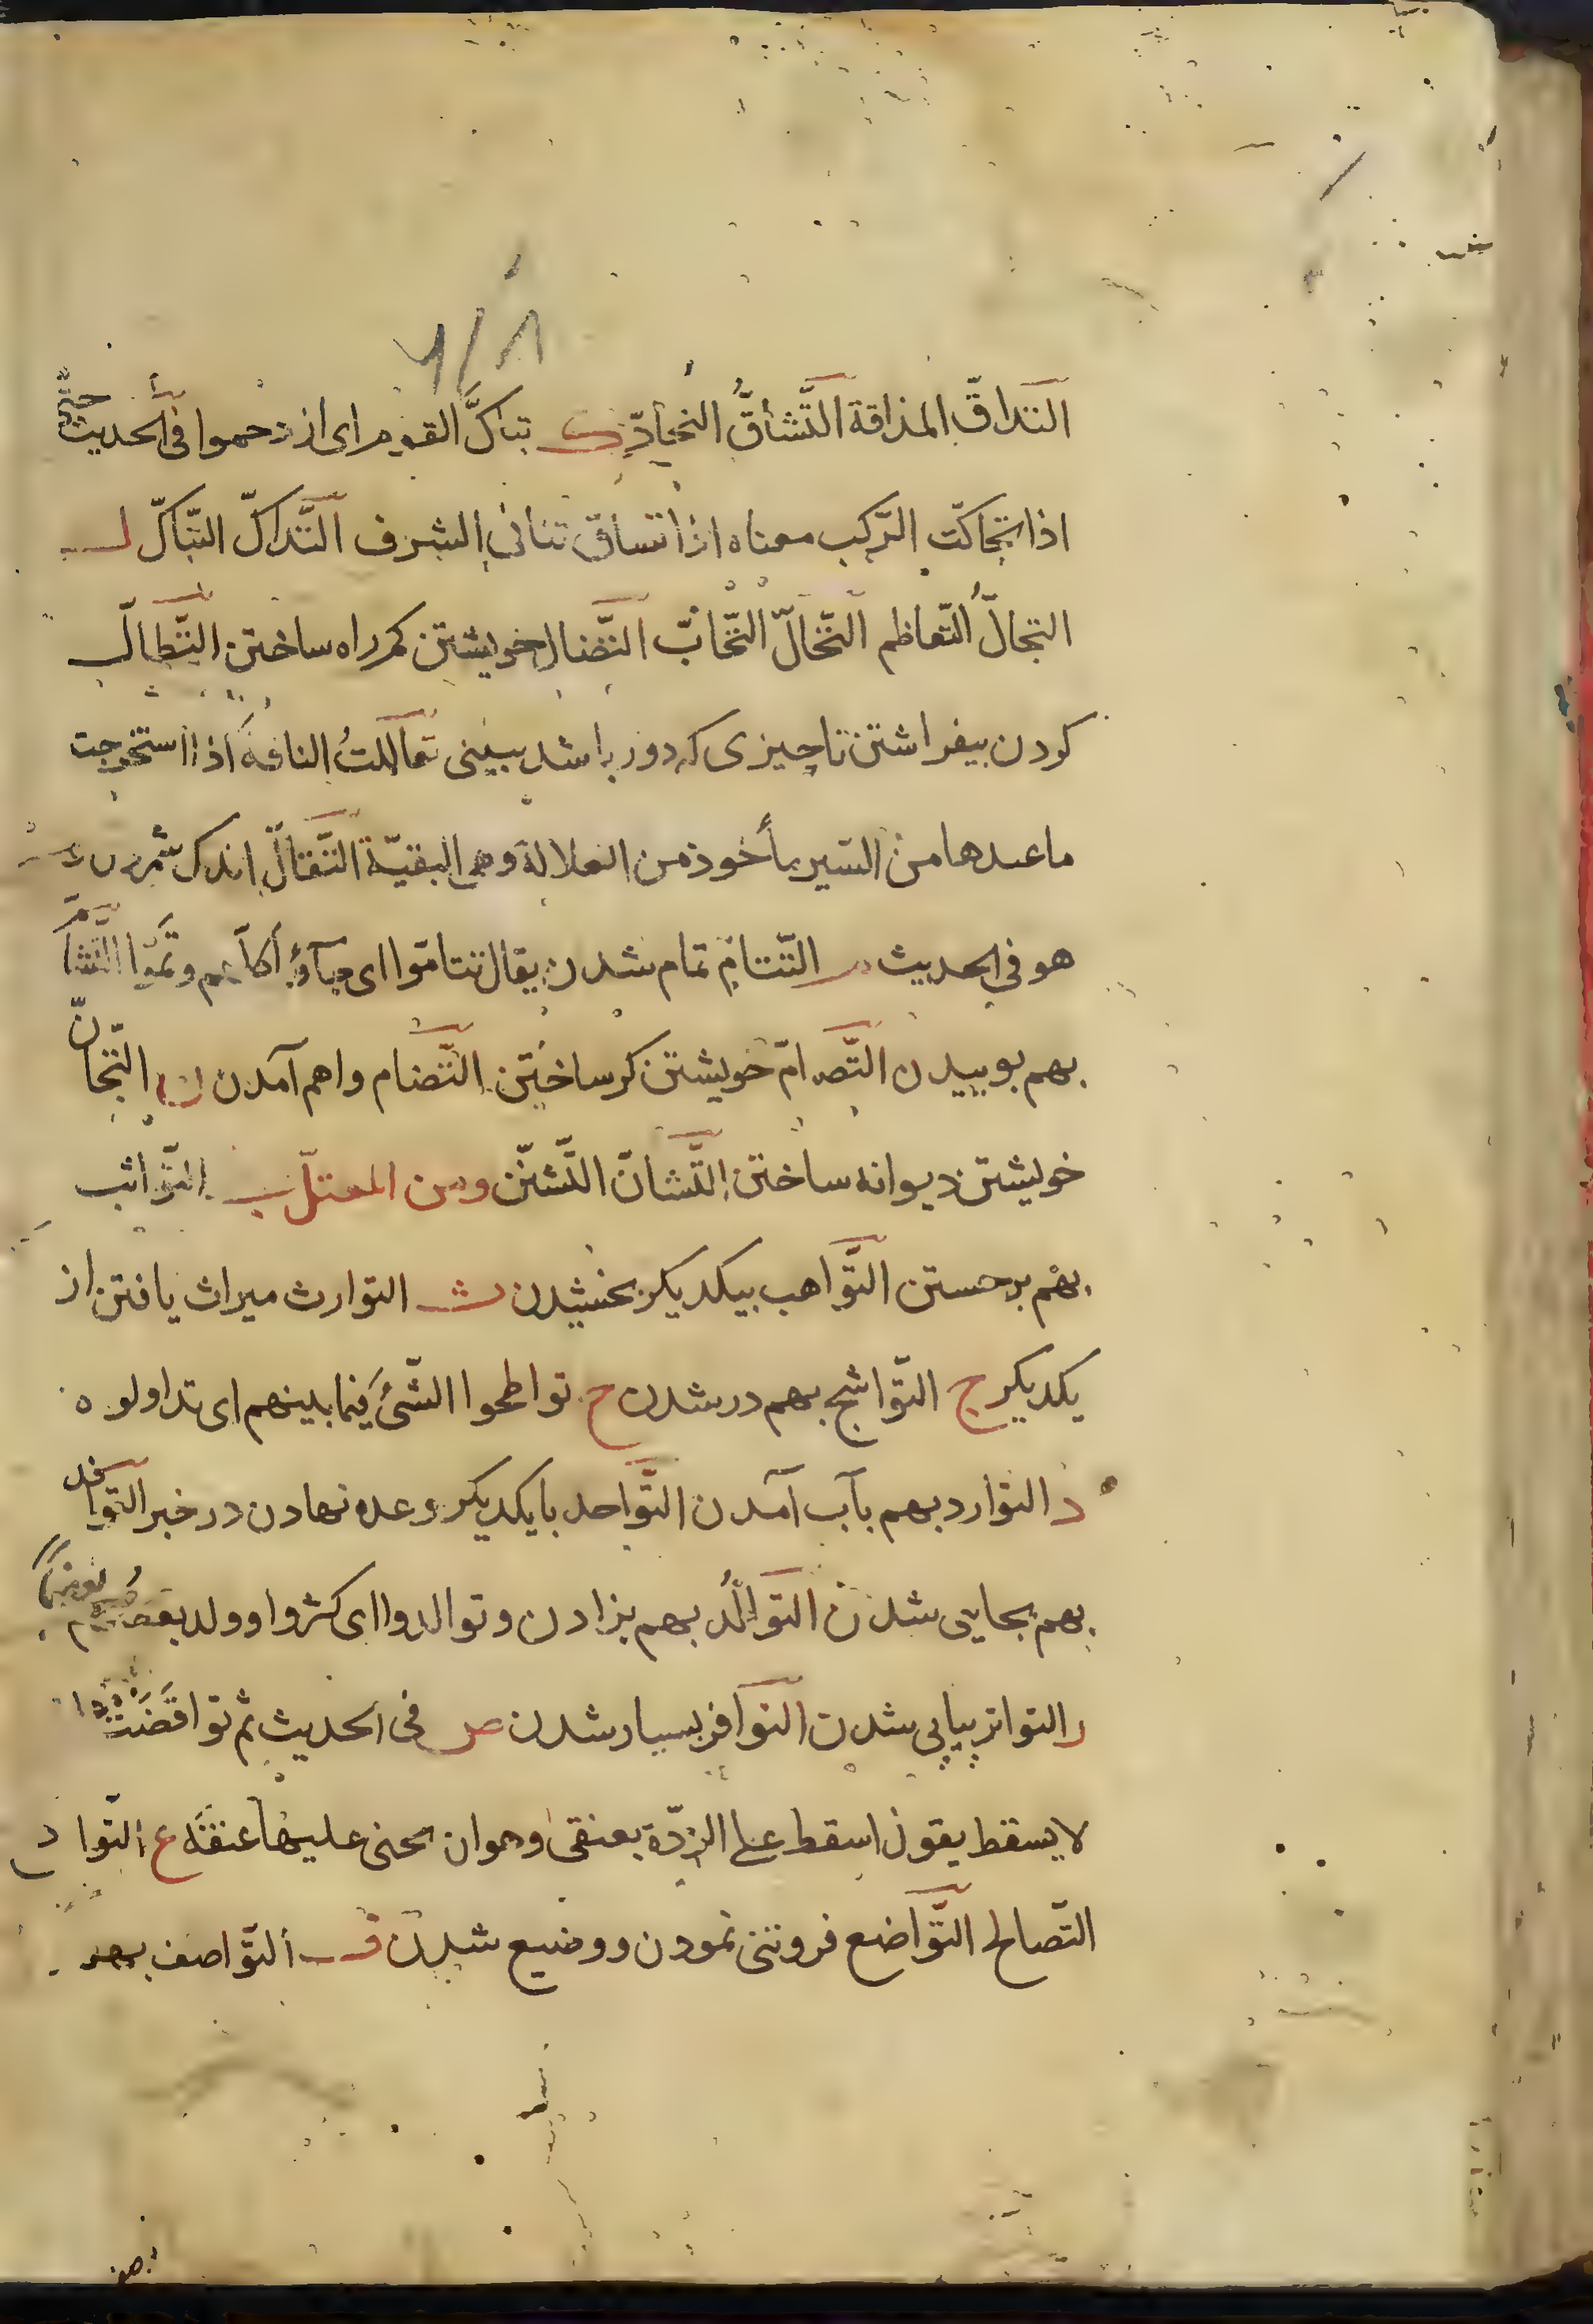 التداقّ المذاقة التَّشاقُّ التحادّ ك تباكَّ القوم اى ازدحموا فى الحديث حتّى
اذا تحاكّت الرّكب معناه اذا تساوى تنافى الشرف التَّداكّ التّباكّ ل
التجالّ التّعاظم التّخالّ التّخابّ التَّضالّ خويشتن كم راه ساختن التَّطالّ
كردن بيفراشتن تا چيزى كه دور باشد ببينى تعاللتُ الناقة اذا استخرجت
ما عندها من السّير مأخوذ من العلالة وهى البقيّة التَّقالّ اندك شمردن
هو فى الحديث م التّتامّ تمام شدن يقال تتامّوا اى جآؤ اكلّهم وتمّوا التَّشا
بهم بوييدن التَّصامّ خويشتن كر ساختن التَّضام واهم آمدن ن التّجانّ
خويشتن ديوانه ساختن التَّشانّ التَّشنّن ومن المعتلّ ب التّواثب
بهم برجستن التَّواهب بيكديكر بخشيدن ث التوارث ميراث يافتن از
يكديكر ج التّواشج بهم در شدن ح تواطحوا الشّئَ فيما بينهم اى تداولوه
د التوارد بهم بآب آمدن التَّواعد با يكديكر وعده نهادن در خير التّوافد
بهم بجايى شدن التّوالُد بهم بزادن وتوالدوا اى كثروا وولد بعضهم بعضًا
ر التواتر پياپى شدن التّوافر بسيار شدن ص فى الحديث ثم تواقصت
لا يسقط يقول اسقط على الردّة بعنقى وهو ان تحنى عليها عنقَه ع التّوادع
التّصالح التَّواضع فروتنى نمودن ووضيع شدن ف التّواصف بهم